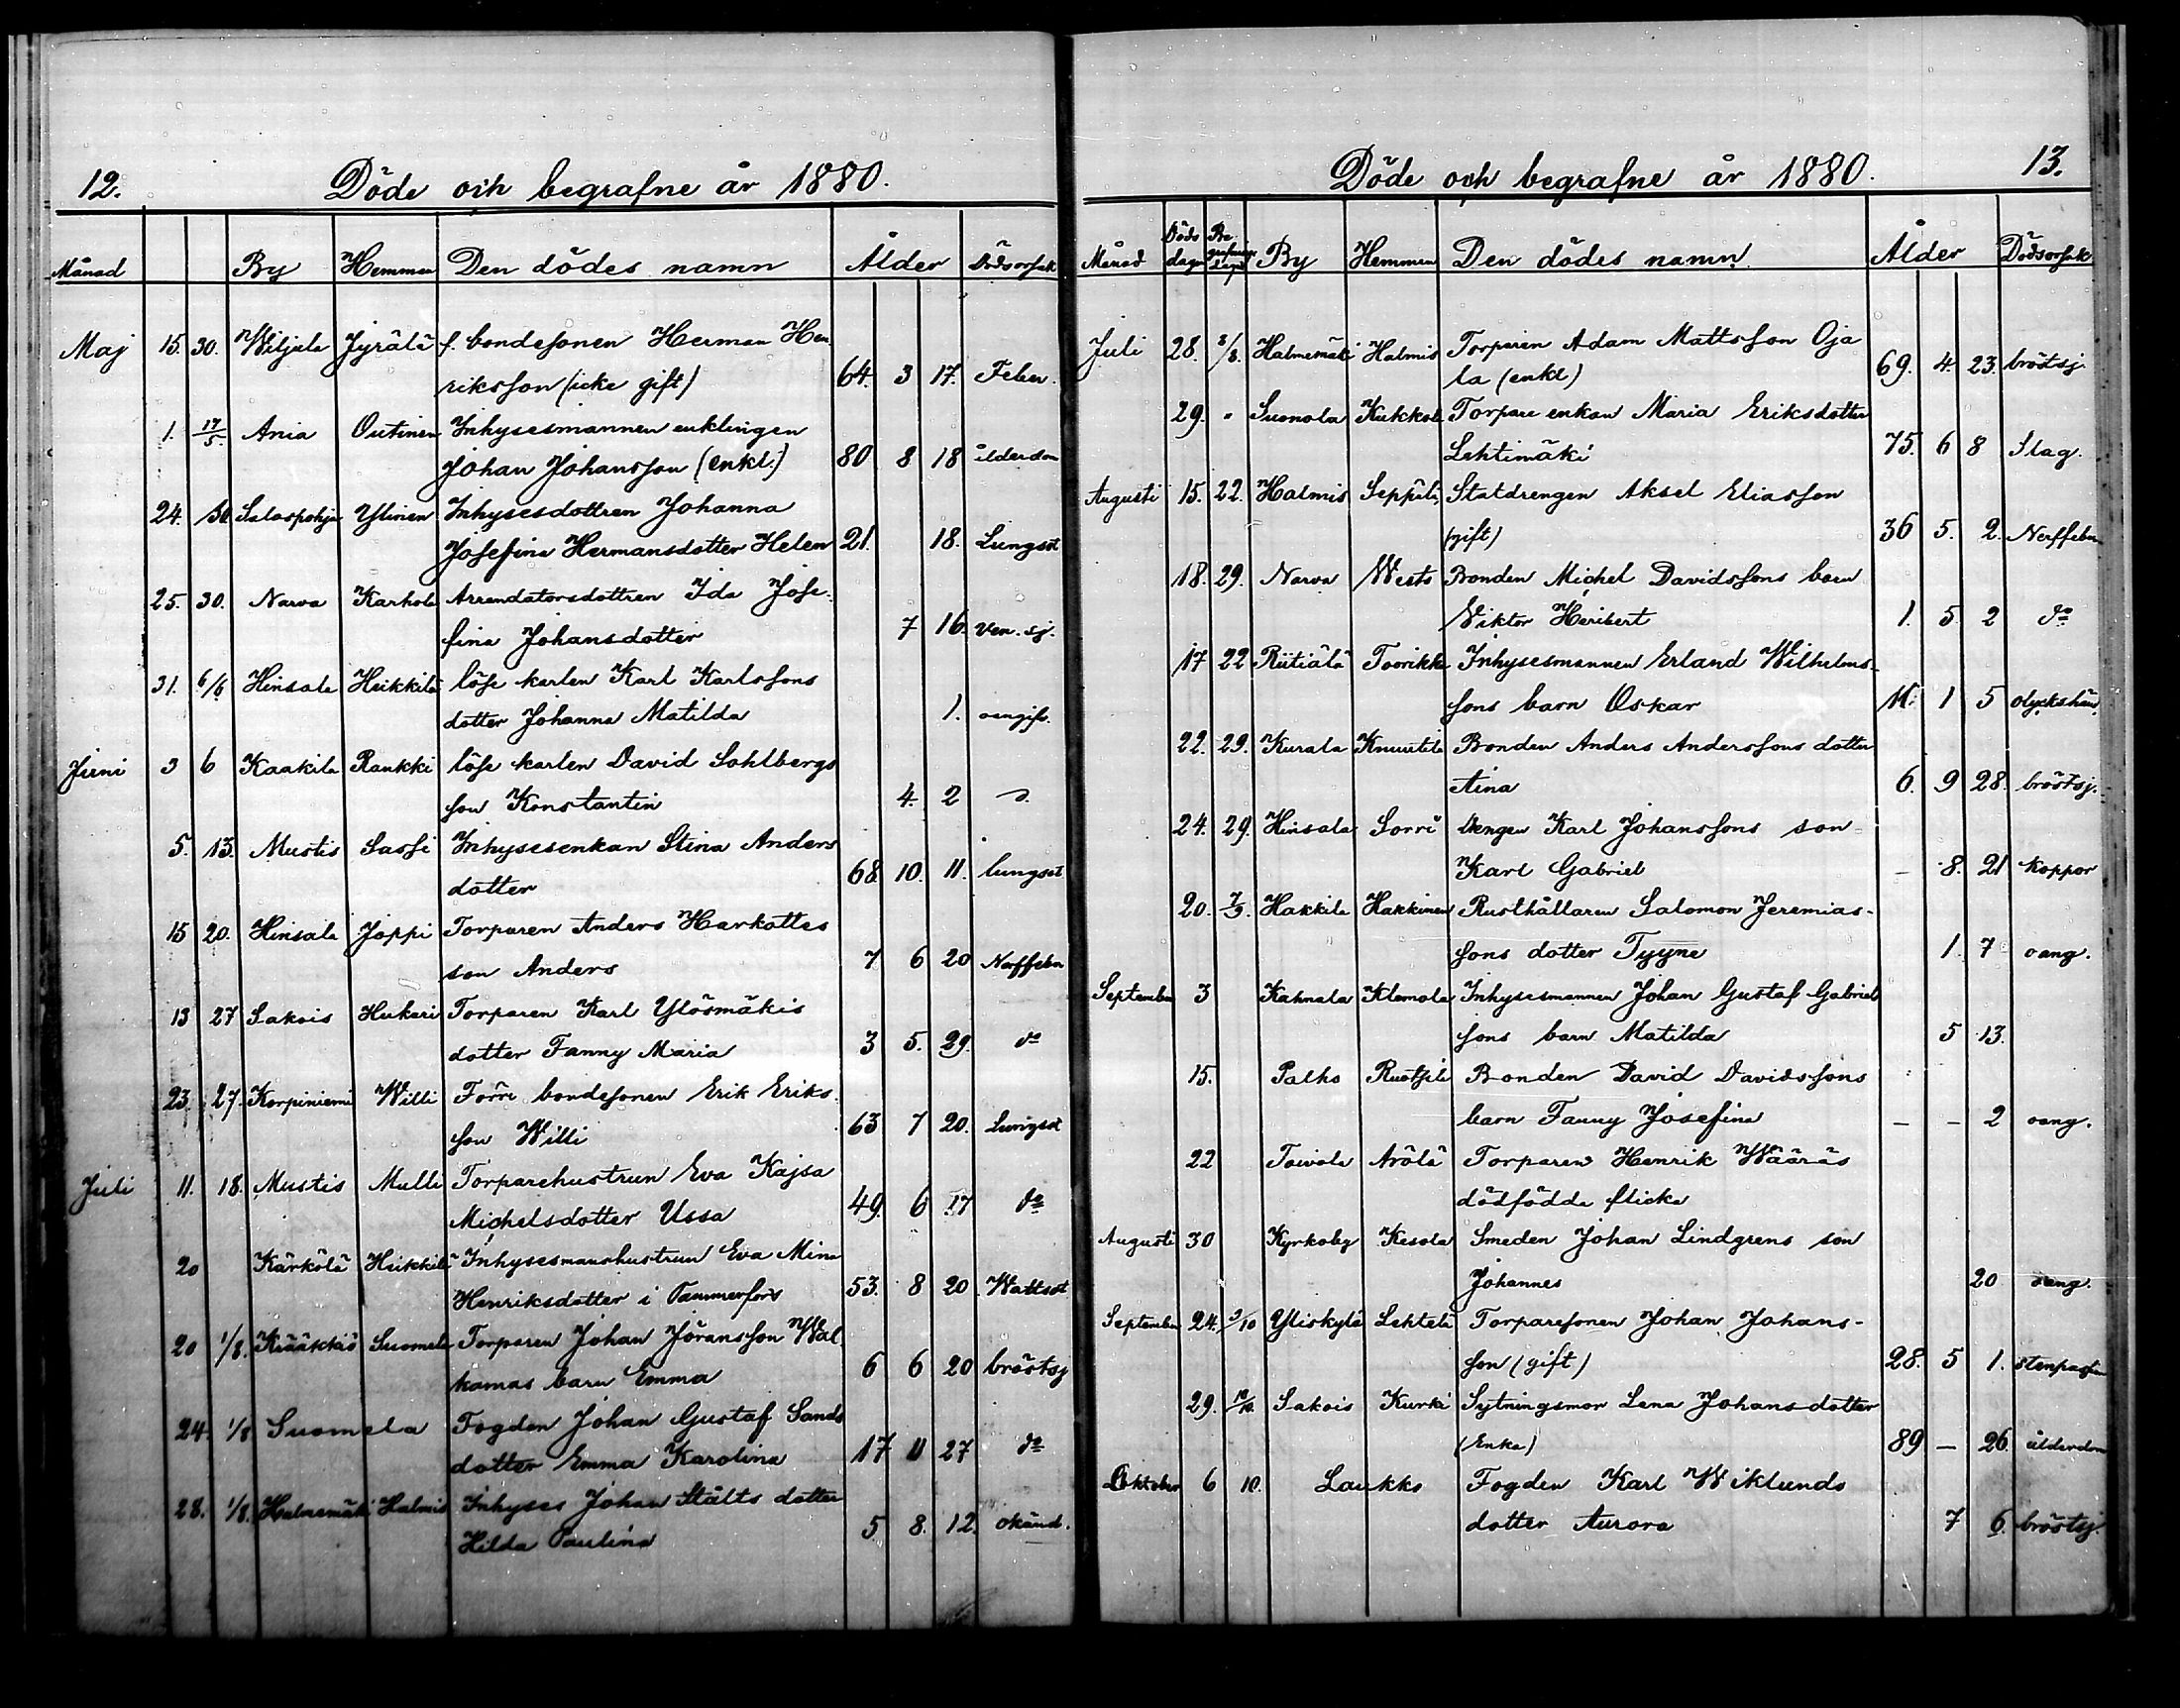 12.
Döde och begrafne år 1880.
Månad By Hemman Den dödes namn Ålder Dödsorsak
Maj 15. 30. Wiljala Jyrälä f. bondesonen Herman Hen
riksson (icke gift) 64. 3 17. Feber.
1. 17/5. Ania Outinen Inhysesmannen enklingen
Johan Johansson (enkl.) 80 8 18 ålderdom
24. 30. Salospohja Ylinen Inhysesdottren Johanna
Josefina Hermansdotter Helen 21. 18. Lungsot
25. 30. Narva Karhola Arrendatorsdottren Ida Jose-
fina Johansdotter 7 16. Ven. sj.
31. 6/6 Hinsala Heikkilä löse karlen Karl Karlssons
dotter Johanna Matilda 1. oangif.
Juni 3 6 Kaakila Raukki löse karlen David Sohlbergs
son Konstantin 4. 2
5. 13. Mustis Sassi Inhysesenkan Stina Anders
dotter 68 10. 11. lungsot
15 20. Hinsala Joppi Torparen Anders Harkottes
son Anders 7 6 20 Nerffeber
13 27 Sakois Hukari Torparen Karl Ylösmäkis
dotter Fanny Maria 3 5. 29. do
23. 27. Korpiniemi Willi Förre bondesonen Erik Eriks
son Willi 63 7 20. Lungsot
Juli 11. 18. Mustis Mulli Torparehustrun Eva Kajsa
Michelsdotter Ussa 49. 6 17 do
20 Kärkölä Heikkilä Inhysesmanshustrun Eva Mina
Henriksdotter i Tammerfors 53. 8 20 Wattsot
20 1/8. Krääkkiö Suomela Torparen Johan Jöransson Wal
kamas barn Emma 6 6 20 bröstsj
24. 1/8 Suomela Fogden Johan Gustaf Sands
dotter Emma Karolina 17 11 27 do
28. 1/8. Halmemäki Halmis Inhyses Johan Stålts dotter
Hilda Paulina 5 8. 12. okänd.
13.
Döde och begrafne år 1880.
Månad Döds dagar Begrafnings dagar By Hemman Den dödes namn Ålder Dödsorsak
Juli 28. 8/8. Halmemäki Halmis Torparen Adam Mattsson Oja
la (enkl) 69. 4. 23. bröstsj.
29. " Suonola Kukkola Torpare enkan Maria Eriksdotter
Lehtimäki 75. 6 8 Slag.
Augusti 15. 22. Halmis Seppälä Statdrengen Aksel Eliasson
(gift) 36 5. 2. Nerffeber
18. 29. Narva Wests Bonden Michel Davidssons barn
Viktor Heribert 1. 5 2 do
17 22 Riitiälä Toorikka Inhysesmannen Erland Wilhelms-
sons barn Oskar 11. 1 5 olyckshän.
22. 29. Kurala Knuutila Bonden Anders Anderssons dotter
Aina 6. 9 28. bröstsj.
24. 29. Hinsala Sorri Drengen Karl Johanssons son
Karl Gabriel - 8. 21 koppor
20. 7/9. Hakkila Hakkinen Rusthållaren Salomon Jeremias-
sons dotter Tyyne 1. 7 oang.
September 3 Kahnala Klemola Inhysesmannen Johan Gustaf Gabriels
sons barn Matilda 5 13.
15. Palho Ruotsila Bonden David Davidssons
barn Fanny Josefina - - 2 oang.
22 Toivola Arölä Torparen Henrik Wääräs
dödfödda flicka
Augusti 30 Kyrkoby Kesola Smeden Johan Lindgrens son
Johannes 20 oang.
September 24. 3/10 Yliskylä Lehtelä Torparesonen Johan Johans-
son (gift) 28. 5 1. stenpassion
29. 10/10. Sakois Kurki Sytningsmor Lena Johansdotter
(Enka) 89 - 26. ålderdom
Oktober 6 10. Laukko Fogden Karl Wiklunds
dotter Aurora 7 6. bröstsj.